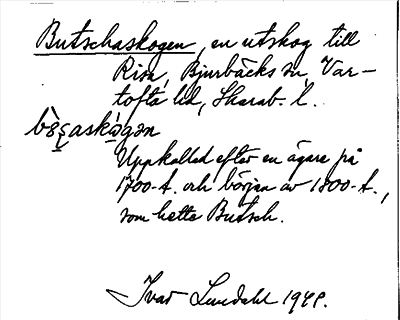 Butschaskogen, en utskog till
Risa, Bjurbäcks sn, Var-
tofta hd, Skarab. l.
Uppkallad efter en ägare på
1700-t. och början av 1800-t.,
som hette Butsch.
Ivar Lundahl 1949.